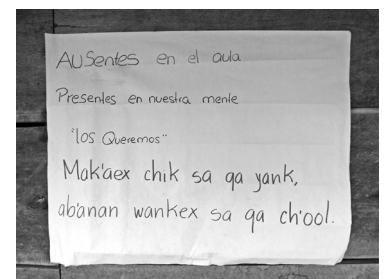 AUSentes en el aula
Presentes en nuestra mente
"los Queremos"
Mak'aex chik sa qa yank,
ab'anan wankex sa qa ch'ool.